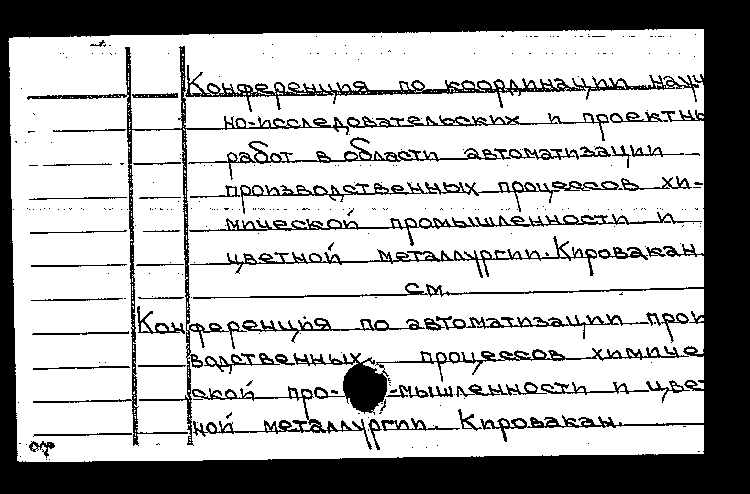 Конференция по координации науч
но-исследовательских и проектны
работ в области автоматизации
производственных процессов хи-
мической промышленности и
цветной металлургии. Кировакан.
см.
Конференция по автоматизации прои
водственных процессов химиче
ской про-мышленности и цвет
ной металлургии. Кировакан.